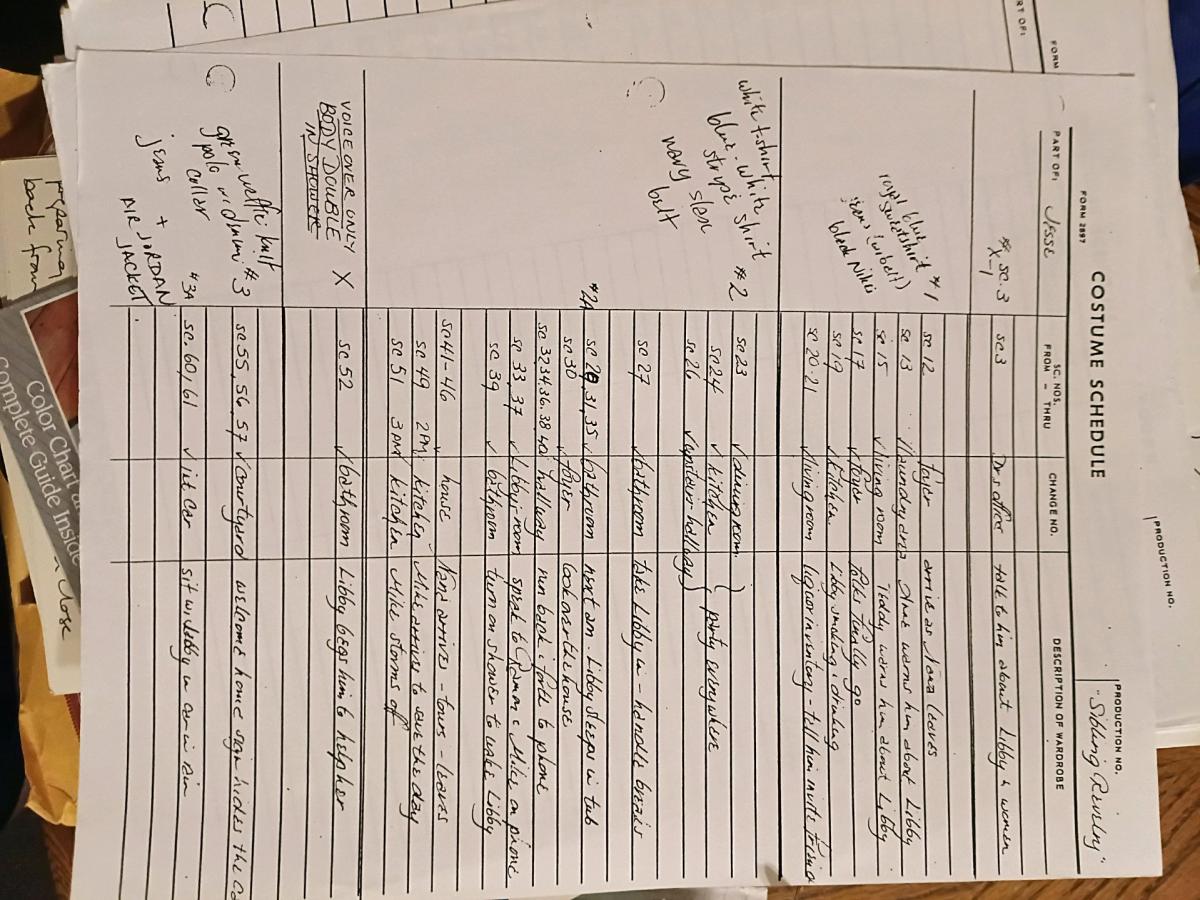 COSTUME SCHEDULE
FORM 2897
PRODUCTION NO.
PRODUCTION NO.
"Sibling Rivalry"
PART OF: JESSE
SC. NOS. FROM – THRU
CHANGE NO.
DESCRIPTION OF WARDROBE
# SC. 3
X-1
SC 3 Dr's office talk to him about Libby & women
sc 12 foyer arrive as Nana leaves
#1
royal blue sweatshirt
jeans (w/belt)
black Nikes
sc 13 laundry area warns him about Libby
sc 15 living room Teddy warns him about Libby
sc 17 foyer folks finally go
sc 19 kitchen Libby smoking & drinking
sc 20-21 living room liquor inventory - tell him invite
#2
white t-shirt
blue-white stripe shirt
navy slax
belt
sc 23 dining room
sc 24 kitchen party everywhere
sc 26 upstair hallway
sc 27 bathroom take Libby in -
#2A
sc 28, 31, 35 bathroom next am. Libby sleeps in tub
sc 30 foyer look over the house
sc 32 34, 36, 38 40 hallway run back & forth to phone
sc 33, 37 Libby's room speak to & Mike on phone
sc 39 bathroom turn on shower to wake Libby
sc 41-46 house Nana arrives - tours - leaves
sc 49 2PM kitchen Mike arrives to save the day
sc 51 3PM kitchen Mike storms off
VOICE OVER ONLY
BODY DOUBLE X
IN SHOWER
sc 52 bathroom Libby begs him to help her
green waffle knit #3
polo w/denim
collar
jeans +
AIR JORDAN
JACKET
sc 55, 56, 57 courtyard welcome home sign hides the
#3A
sc. 60, 61 int Car sit w/Libby in car in rain
FORM
RT OF:
preparing
back from
Color Chart
Complete Guide Inside
Close